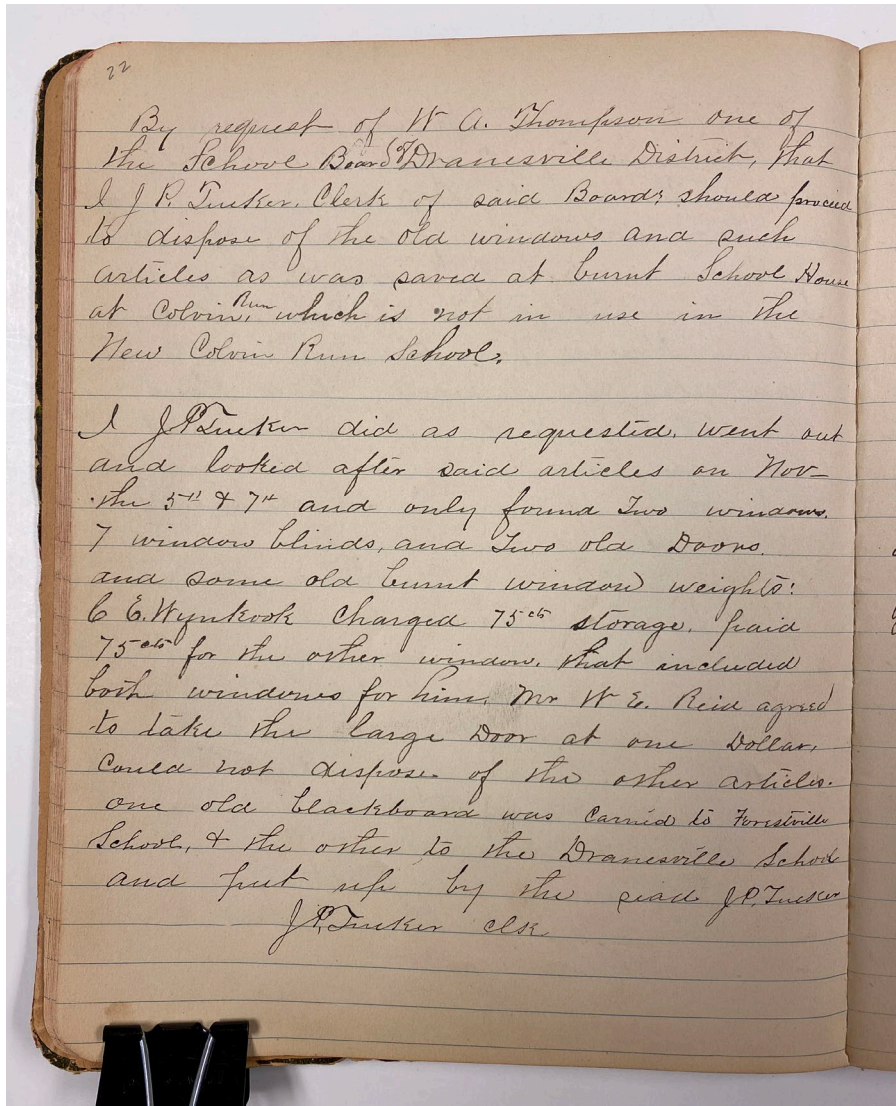 22
By request of W A. Thompson one of
the School Board of Dranesville District, that
I J P. Tucker. Clerk of said Board; should proceed
to dispose of the old windows and such
articles as was saved at burnt School House
at Colvin Run, which is not in use in the
New Colvin Run School.
I J.P. Tucker did as requested, went out
and looked after said articles on Nov-
the 5th & 7th and only found Two windows.
7 window blinds, and Two old Doors.
and some old burnt window weights:
C E. Wynkook Charged 75cts storage. paid
75cts for the other window. that included
both windows for him. Mr W E. Reid agreed
to take the large Door at one Dollar.
Could not dispose of the other articles.
one old blackboard was carried to Forestville
School, & the other to the Dranesville School
and put up by the siad J.P. Tucker
J.P. Tucker clk